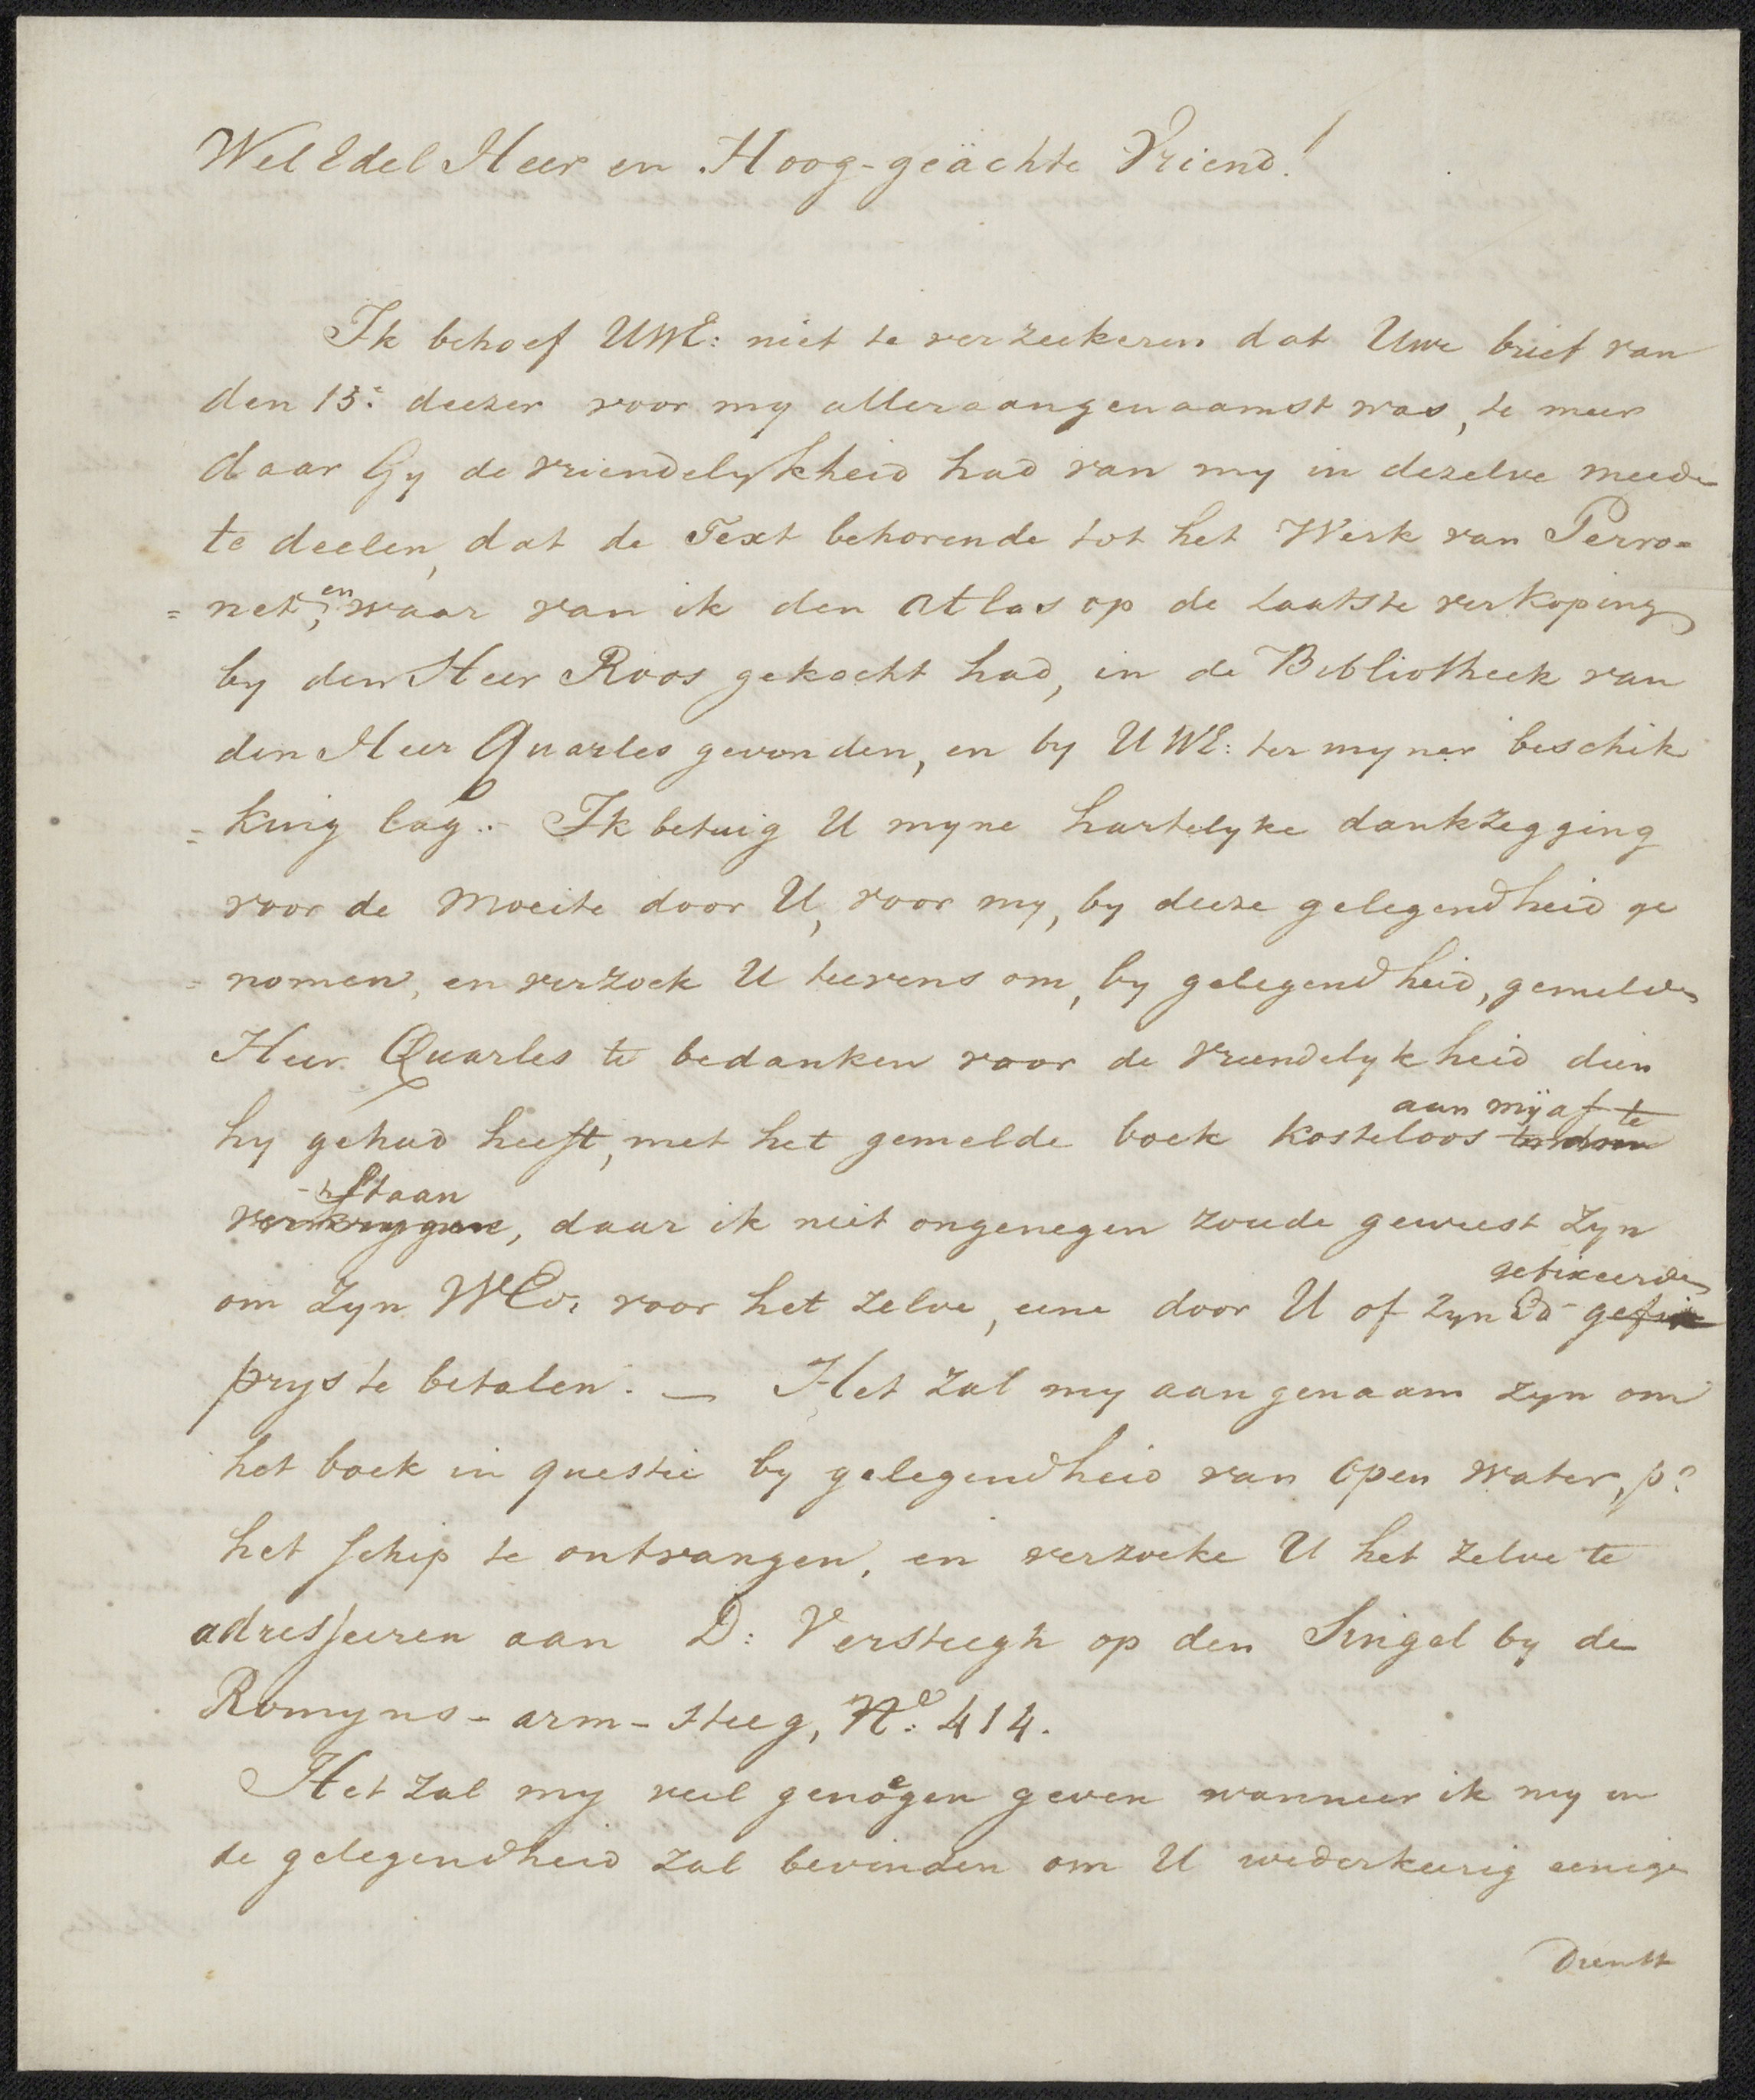 Wel Edel Heer en Hoog-geächte Vriend!
Ik behoef UWE: niet te verzeekeren dat Uwe brief van
den 13e deezer voor my alleraangenaamst was, te meer
daar Gy de vriendelykheid had van my in dezelve meede
te deelen, dat de Text behorende tot het Werk van Perro=
= net, en waar van ik den Atlas op de Laatste verkoping
by den Heer Roos gekocht had, in de Bibliotheek van
den Heer Quarles gevonden, en by UWE: ter myner beschik
= king lag. - Ik betuig U myne hartelyke dankzegging
voor de moeite door U, voor my, by deeze gelegendheid ge
= nomen, en verzoek U teevens om, by gelegendheid, gemelden
Heer Quarles te bedanken voor de vriendelykheid dien
aan mÿ af te
hy gehad heeft, met het gemelde boek kosteloos
staan
verkrygen, daar ik niet ongenegen zoude geweest zyn
gefixeerde
om zyn WEd: voor het zelve, eene door U of zyn Ed gefix
prys te betalen. — Het zal my aangenaam zyn om
het boek in questie by gelegendheid van open water, pr
het schip te ontvangen, en verzoeke U het zelve te
adresseeren aan D: Versteegh op den Singel by de
Romyns-arm-steeg, No: 414.
Het zal my veel genoegen geven wanneer ik my in
de gelegendheid zal bevinden om U wederkeerig eenige
Dienst